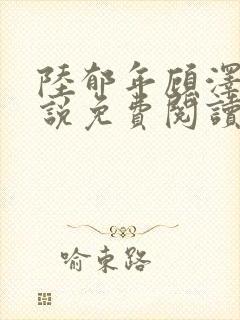 陸郁年顧澤
說免費閱讀
喻東路